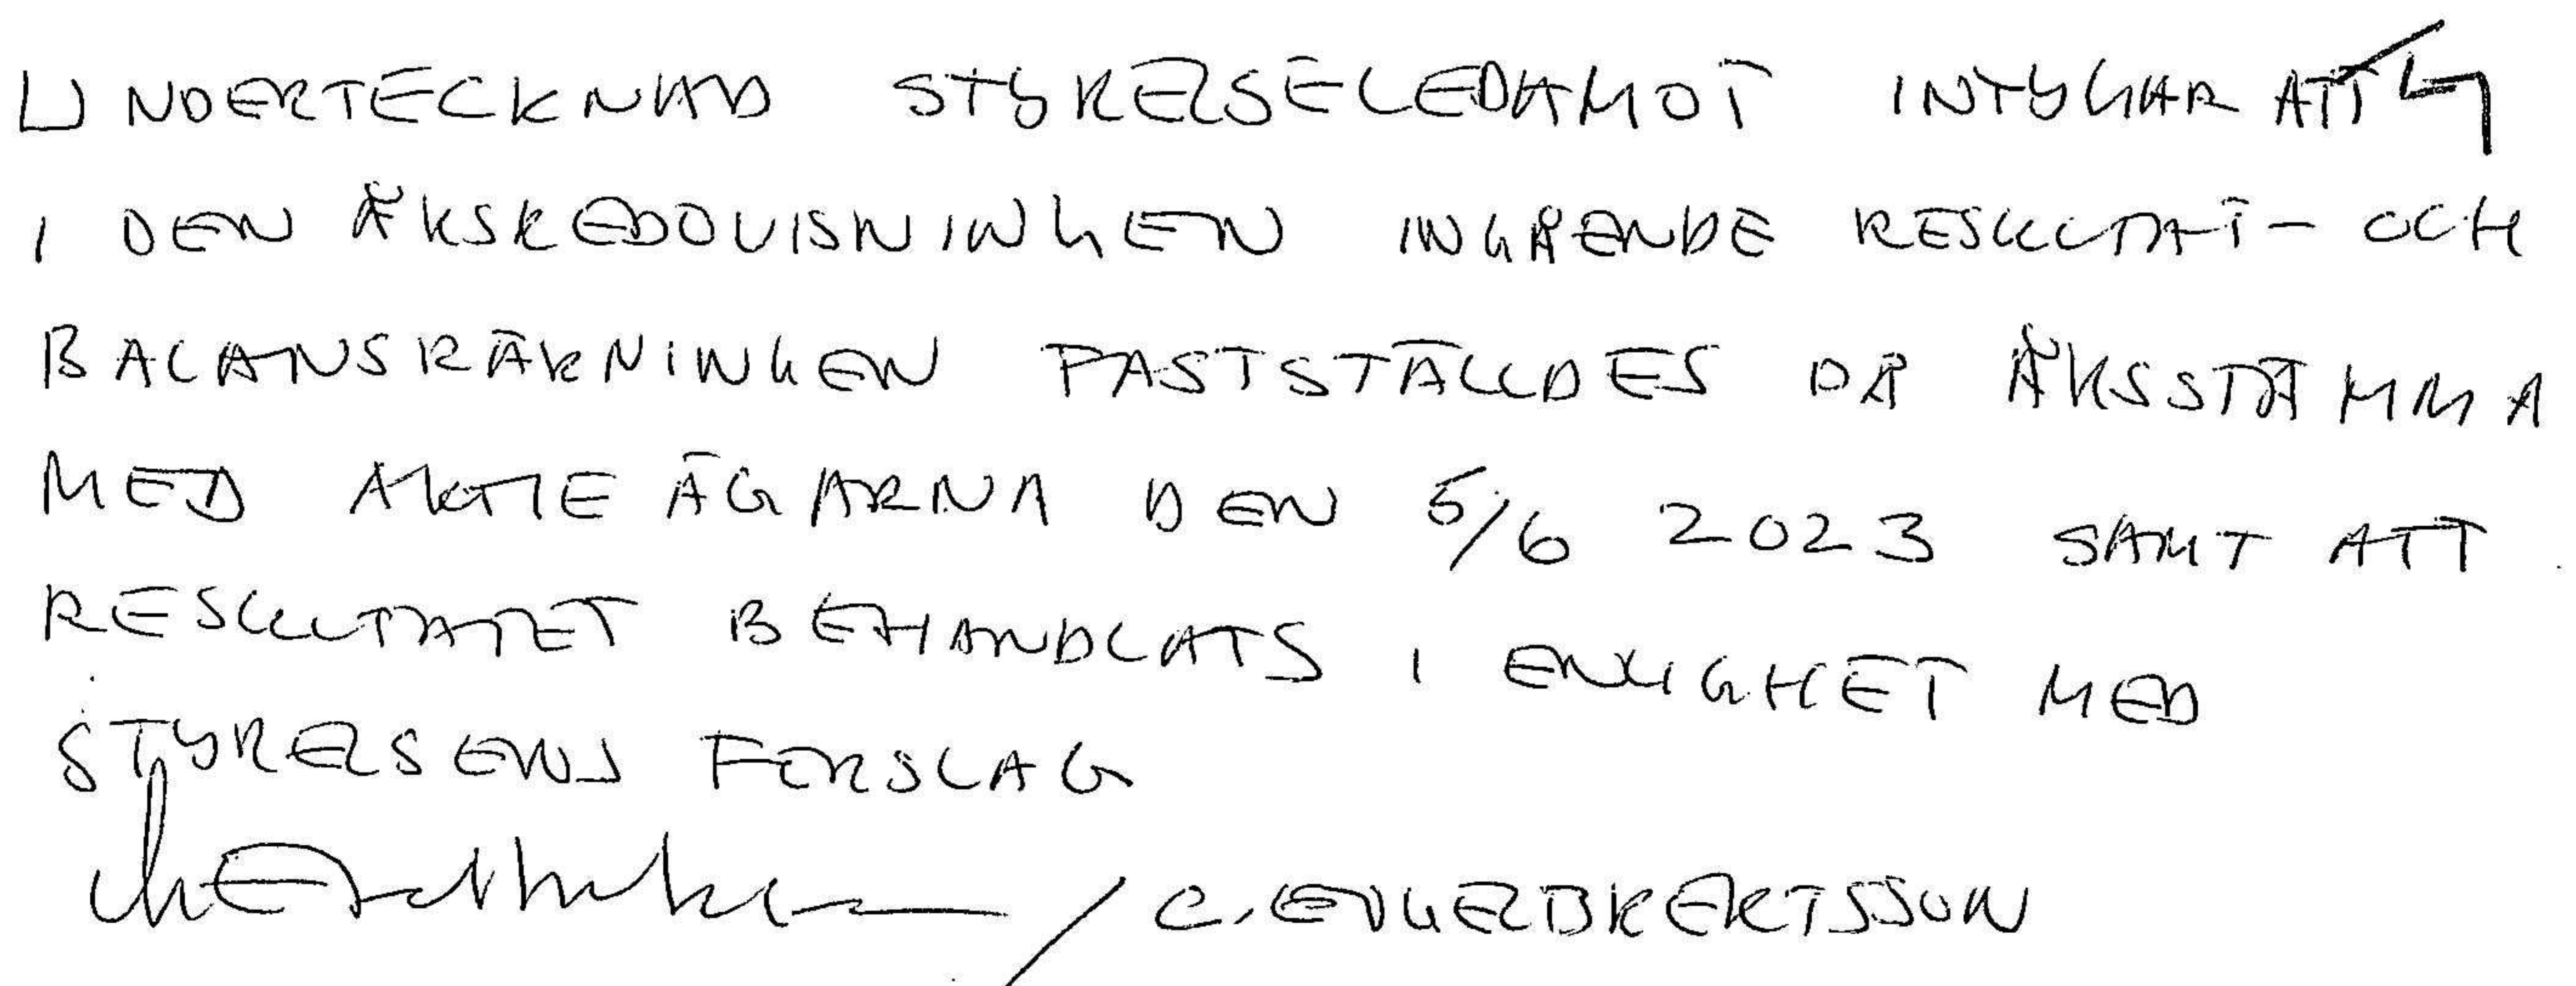 UNDERTECKNAD STYRELSELEDAMOT INTYGAR ATT
I DEN ÅRSREDOVISNINGEN INGÅENDE RESULTAT- OCH
BALANSRÄKNINGEN FASTSTÄLLDES PÅ ÅRSSTÄMMA
MED AKTIEÄGARNA DEN 5/6 2023 SAMT ATT
RESULTATET BEHANDLATS I ENLIGHET MED
STYRELSENS FÖRSLAG
/ C. ENGELBREKTSSON